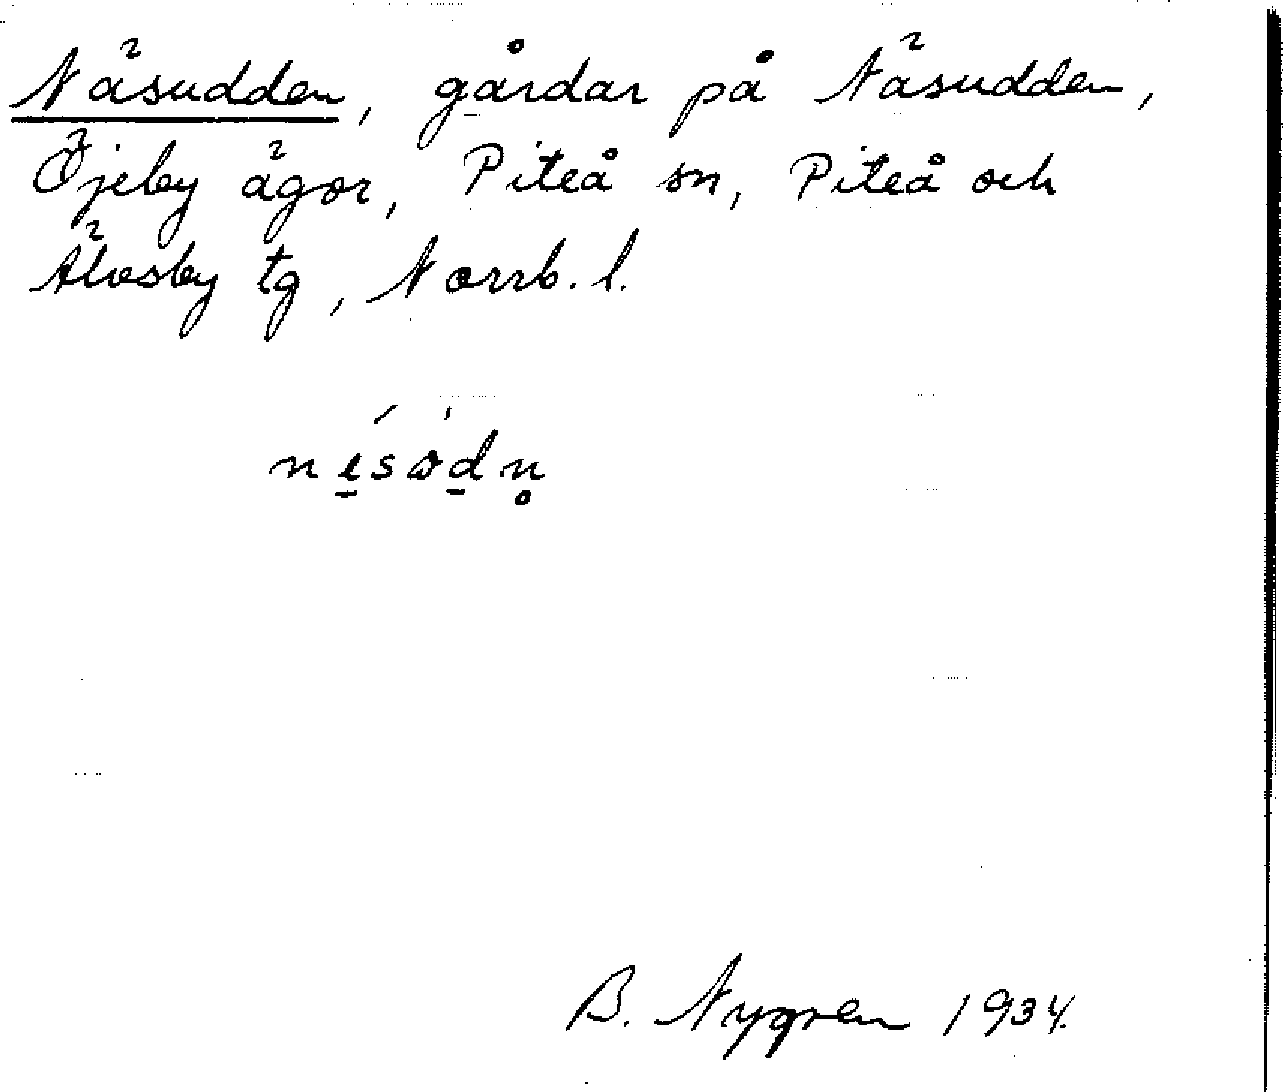 Näsudden, gårdar på Näsudden,
Öjeby ägor, Piteå sn, Piteå och
Älvsby tg, Norrb. l.
B. Nygren 1934.